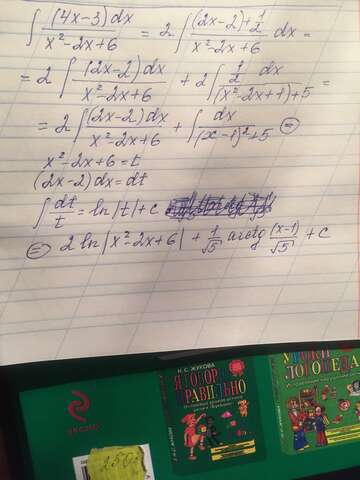 ∫ (4x-3)dx / x²-2x+6 = 2∫ (2x-2)+1/2 / x²-2x+6 dx =
= 2∫ (2x-2)dx / x²-2x+6 + 2∫ 1/2 dx / (x²-2x+1)+5 =
= 2∫ (2x-2)dx / x²-2x+6 + ∫ dx / (x-1)²+5 ⊜
x²-2x+6=t
(2x-2)dx=dt
∫ dt/t = ln|t|+c
⊜ 2 ln|x²-2x+6| + 1/√5 arctg (x-1)/√5 + c
Н.С. ЖУКОВА
Я ГОВОРЮ
ПРАВИЛЬНО
УРОКИ
ЛОГОПЕДА
эксмо
250